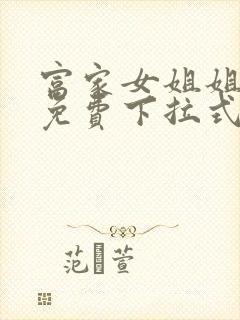 富家女姐姐
免費下拉式
范 萱